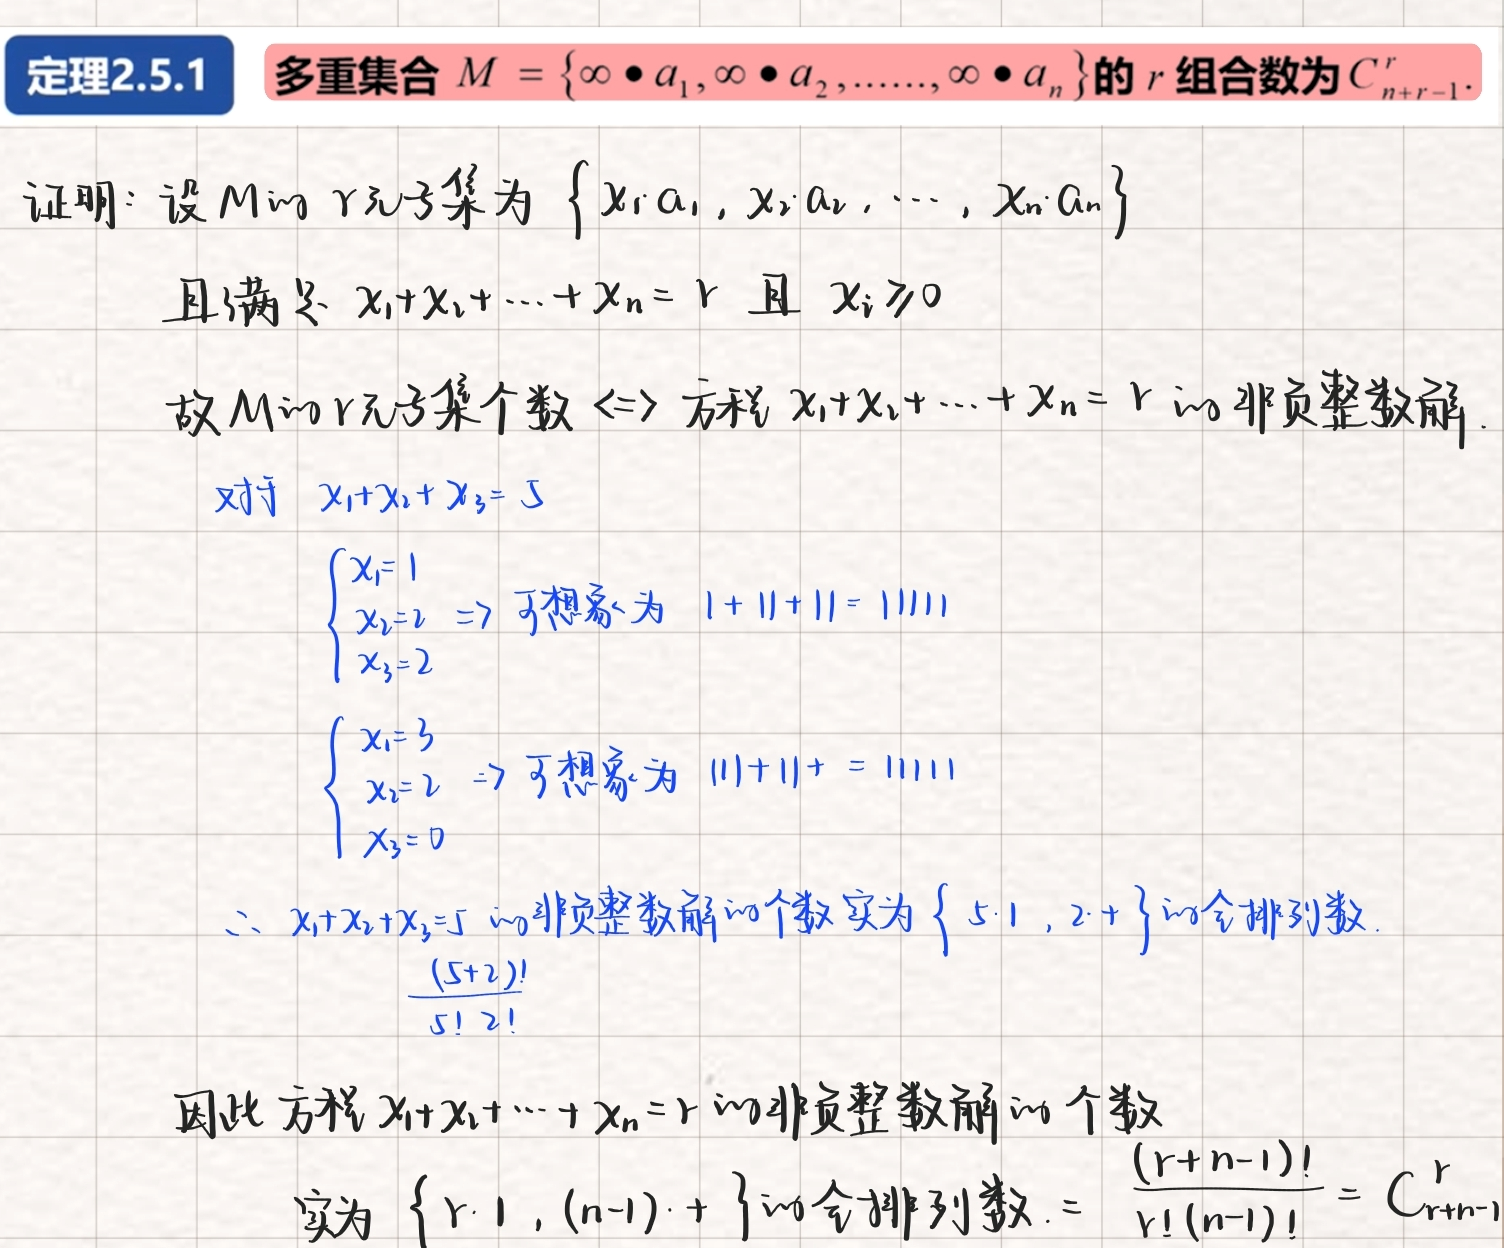 定理2.5.1 多重集合 M = {∞•a₁, ∞•a₂, ......, ∞•aₙ}的 r 组合数为 C^r_{n+r-1}.
证明: 设M的r元子集为 {x₁·a₁, x₂·a₂, …, xₙ·aₙ}
且满足 x₁+x₂+…+xₙ=r 且 xᵢ⩾0
故M的r元子集个数 <=> 方程 x₁+x₂+…+xₙ=r 的非负整数解.
对于 x₁+x₂+x₃=5
x₁=1
x₂=2 => 可想象为 1+11+11=11111
x₃=2
x₁=3
x₂=2 => 可想象为 111+11+ =11111
x₃=0
∴ x₁+x₂+x₃=5 的非负整数解的个数实为 {5·1, 2·+}的全排列数.
(5+2)!
5! 2!
因此方程 x₁+x₂+…+xₙ=r 的非负整数解的个数
实为 {r·1, (n-1)·+}的全排列数. = (r+n-1)! / r!(n-1)! = C^r_{r+n-1}